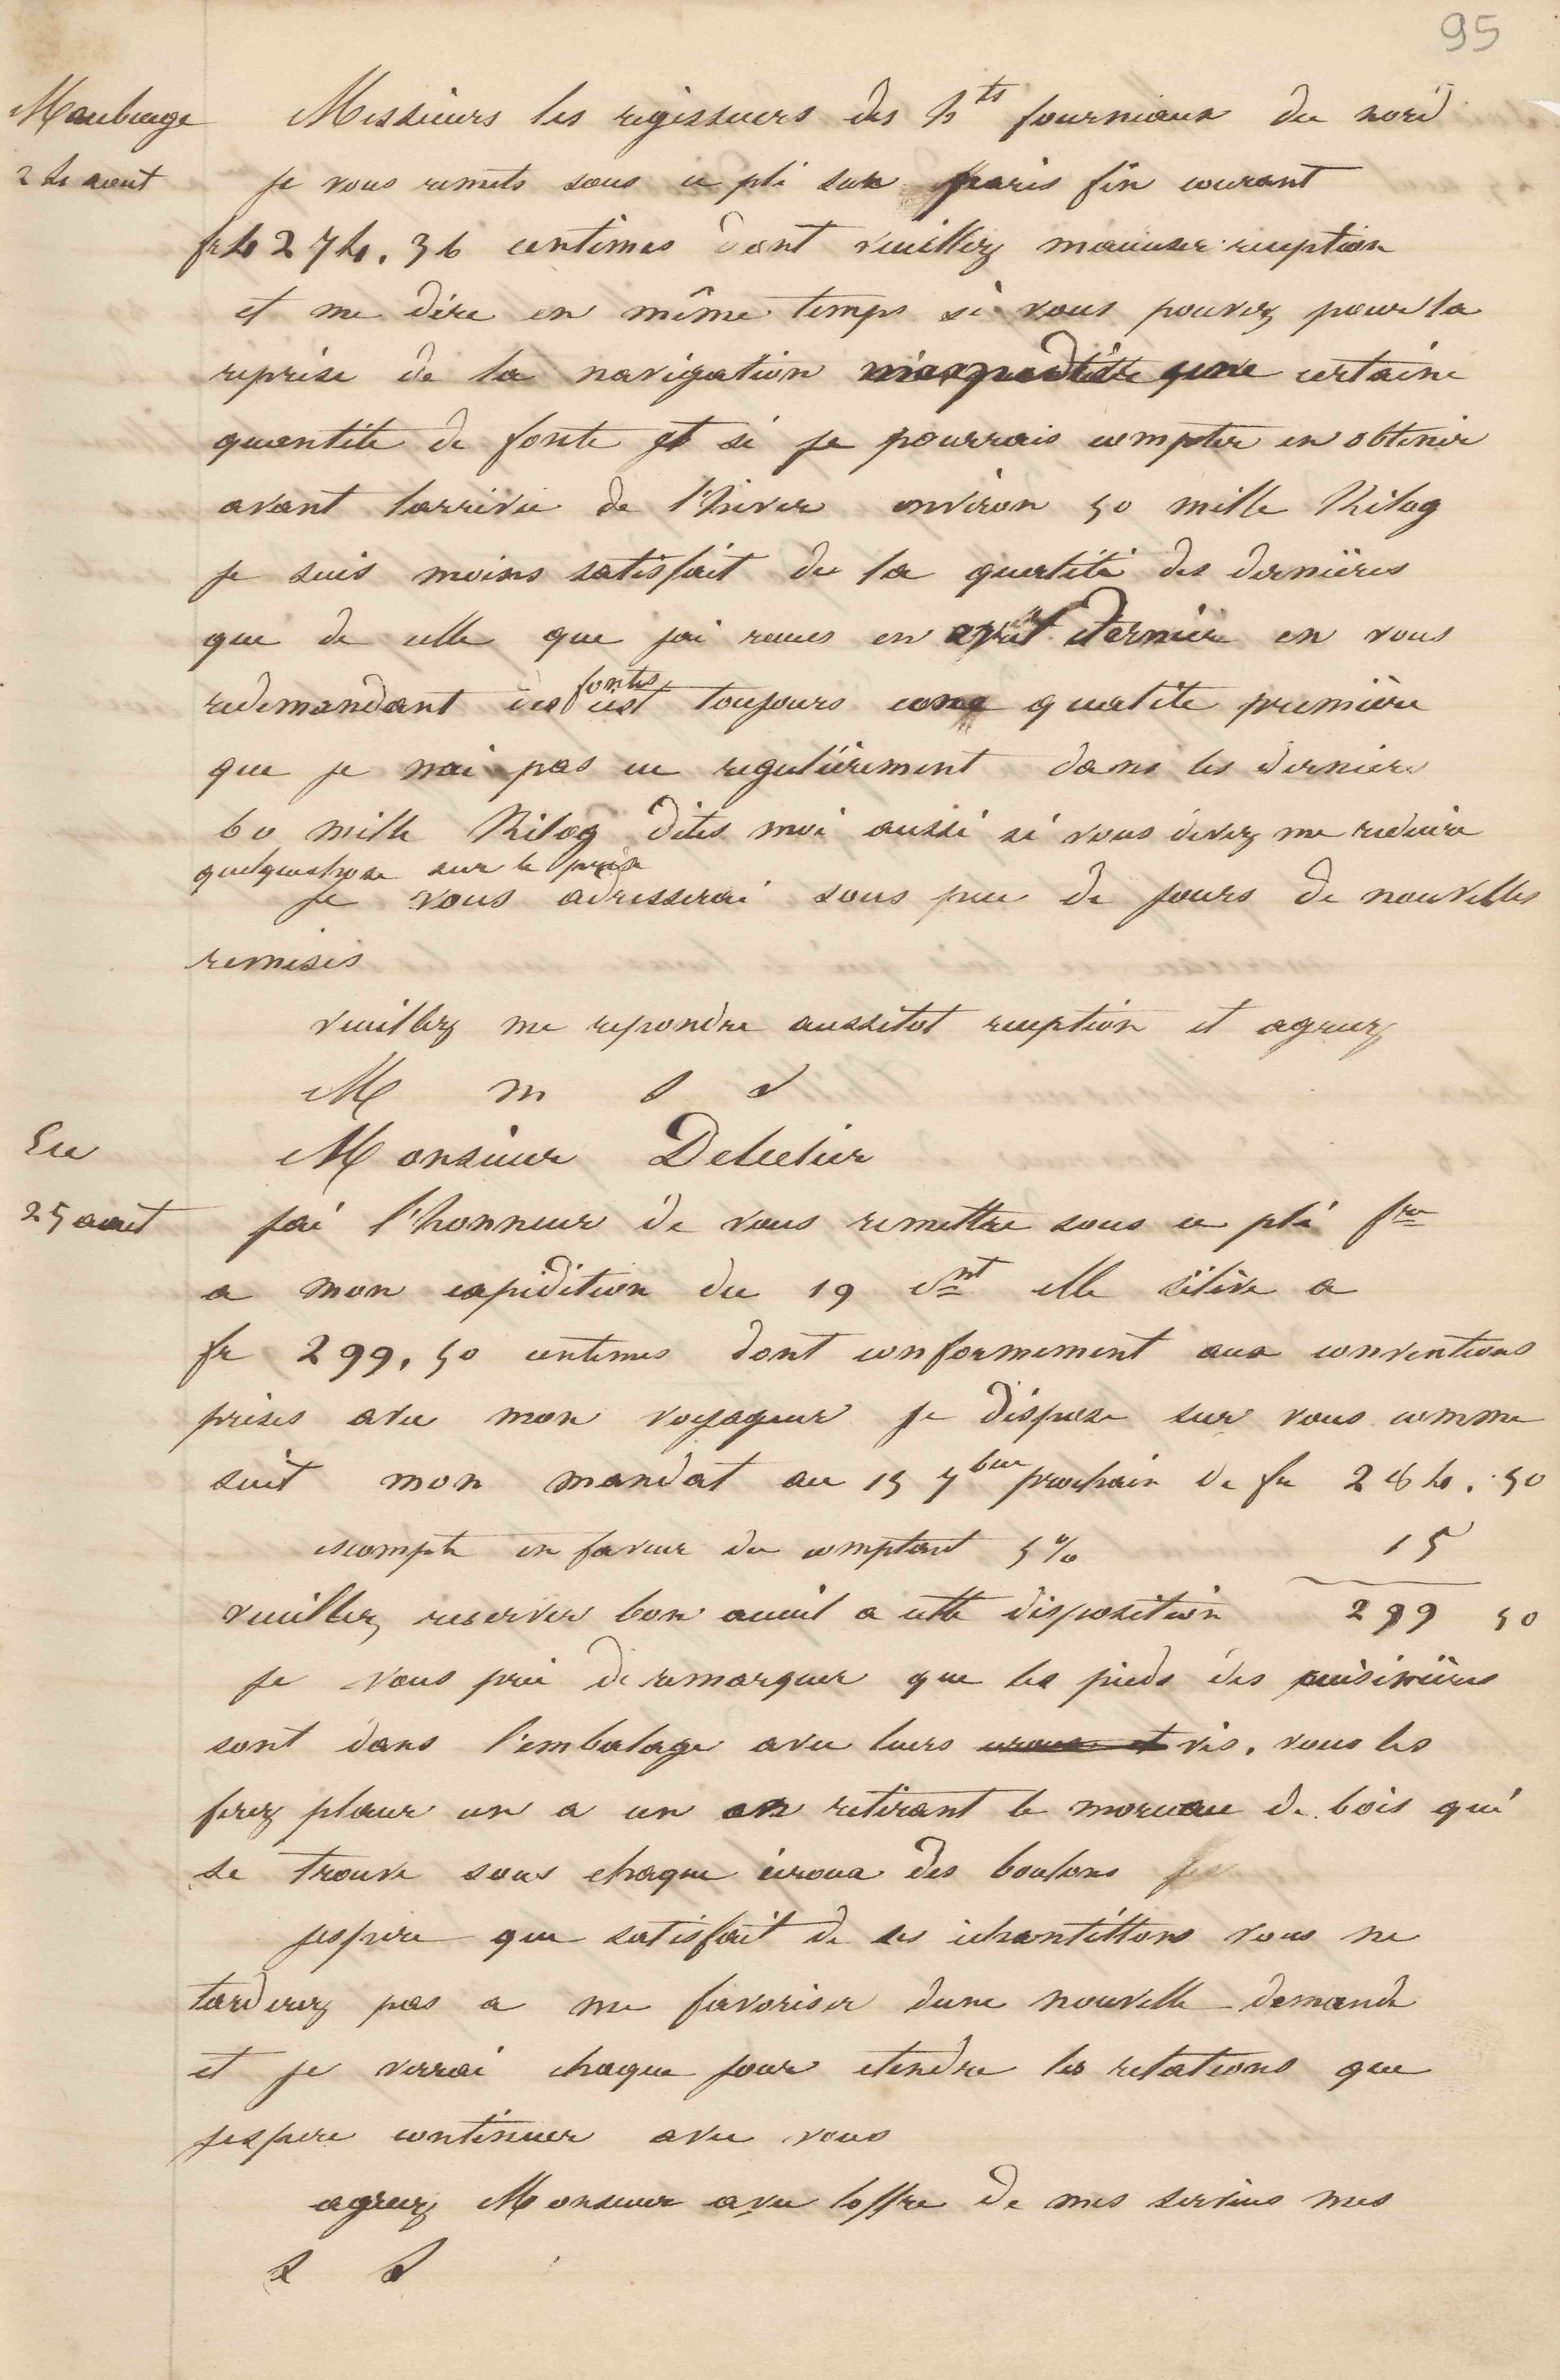 95
Maubeuge Messieurs les regisseurs des hts fourniaux du nord
24 aout je vous remets sous ce pli sur paris fin courant
fr 4274.36 centimes dont veuillez m'accuser reception
et me dire en même temps si vous pouvez pour la
reprise de la navigation m'expedier une certaine
quantité de fonte et si je pourrais compter en obtenir
avant larrivée de l'hiver environ 50 mille Kilog
je suis moins satisfait de la qualité des dernières
que de celle que jai reçues en avril dernier en vous
redemandant des fontes cest toujours qualité première
que je nai pas eu regulièrement dans les derniers
60 mille Kilog dites moi aussi si vous devez me reduire
quelquechose sur le prix
Je vous adresserai sous peu de jours de nouvelles
remises
veuillez me repondre aussitot reception et agreez
M m s d
Eu Monsieur Deletier
25 aout jai l'honneur de vous remettre sous ce pli fre
a mon expédition du 19 cnt elle s'élève a
fr 299.50 centimes dont conformement aux conventions
prises avec mon voyageur je dispose sur vous comme
suit mon mandat au 15 7bre prochain de fr 284.50
escompte en faveur du comptant 5% 15
veuillez reserver bon accueil a cette disposition 299 50
je vous prie de remarquer que les pieds des cuisinières
sont dans l'embalage avec leurs vis. vous les
ferez placer un a un en retirant le morceau de bois qui
se trouve sous chaque écroux des boulons
jespere que satisfait de ses échantillons vous ne
tarderez pas a me favoriser dune nouvelle demande
et je verrai chaque jour etendre les relations que
jespere continuer avec vous
agreez Monsieur avec loffre de mes services mes
S S